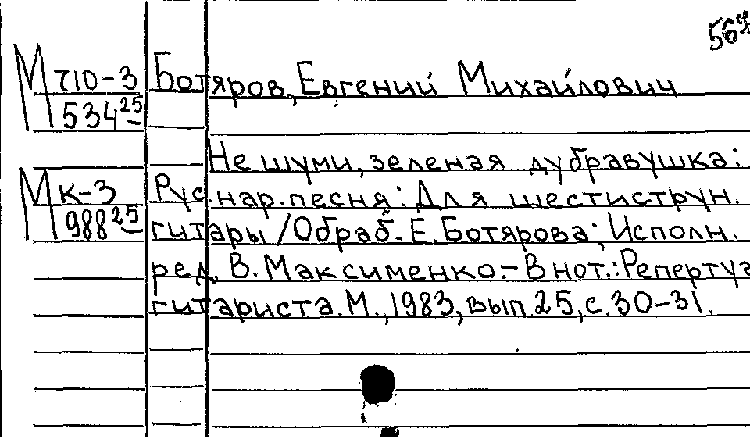 56
М 710-3 Ботяров, Евгений Михайлович
534 25
Не шуми, зеленая дубравушка:
М К-3 Рус. нар. песня: Для шестиструн.
988 25 гитары / Обраб. Е. Ботярова; Исполн.
ред. В. Максименко.- В нот.: Репертуа
гитариста. М., 1983, вып. 25, с. 30-31.